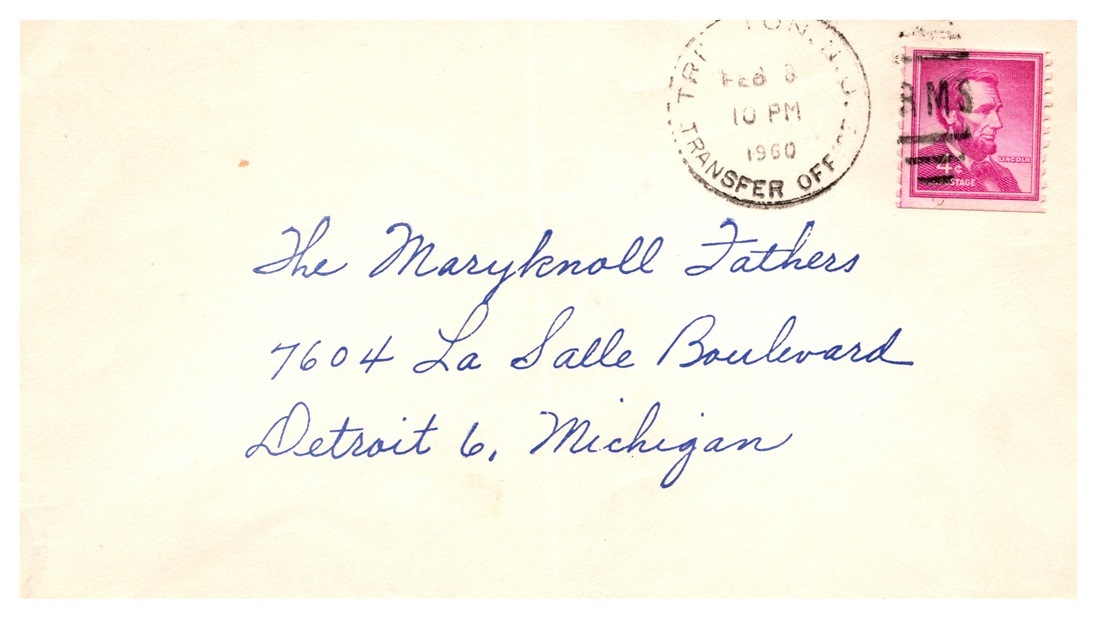 TRE TON, N.J.
FEB 8
10 PM
1960
TRANSFER OFFICE
RMS
LINCOLN
4¢
POSTAGE
The Maryknoll Fathers
7604 La Salle Boulevard
Detroit 6, Michigan